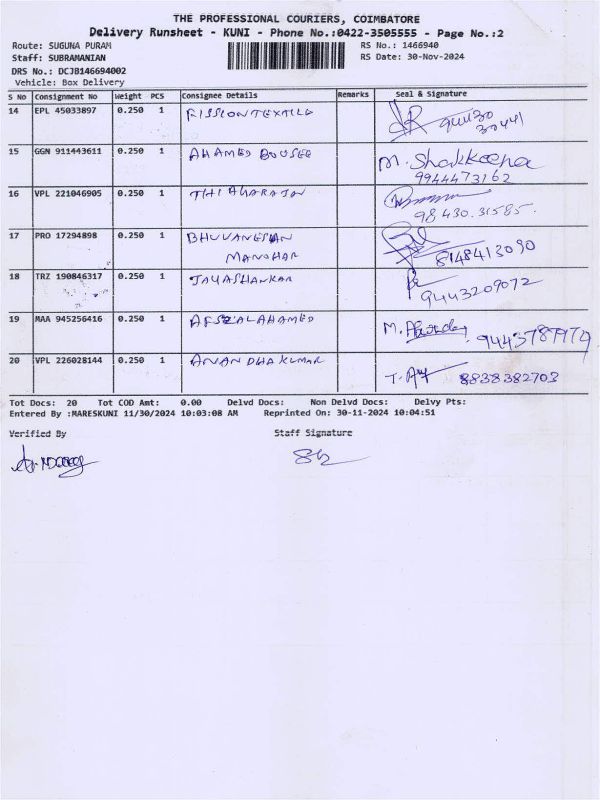 THE PROFESSIONAL COURIERS, COIMBATORE
Delivery Runsheet - KUNI - Phone No.:0422-3505555 - Page No.:2
Route: SUGUNA PURAM RS No.: 1466940
Staff: SUBRAMANIAN RS Date: 30-Nov-2024
DRS No.: DCJB146694002
Vehicle: Box Delivery
S No Consignment No Weight PCS Consignee Details Remarks Seal & Signature
14 EPL 45033897 0.250 1 RISSIONTEXTILE
15 GGN 911443611 0.250 1 AHAMED BOUSEE M. Shakkeena
9944473162
16 VPL 221046905 0.250 1 THIAHARAJAN
98430.31585.
17 PRO 17294898 0.250 1 BHUVANESIAN
MANOHAR 8148413090
18 TRZ 190846317 0.250 1 JAYASHANKAR
9443209072
19 MAA 945256416 0.250 1 AFSZALAHAMED M.
20 VPL 226028144 0.250 1 ANANDHAKUMAR
8838382703
Tot Docs: 20 Tot COD Amt: 0.00 Delvd Docs: Non Delvd Docs: Delvy Pts:
Entered By :MARESKUNI 11/30/2024 10:03:08 AM Reprinted On: 30-11-2024 10:04:51
Verified By Staff Signature